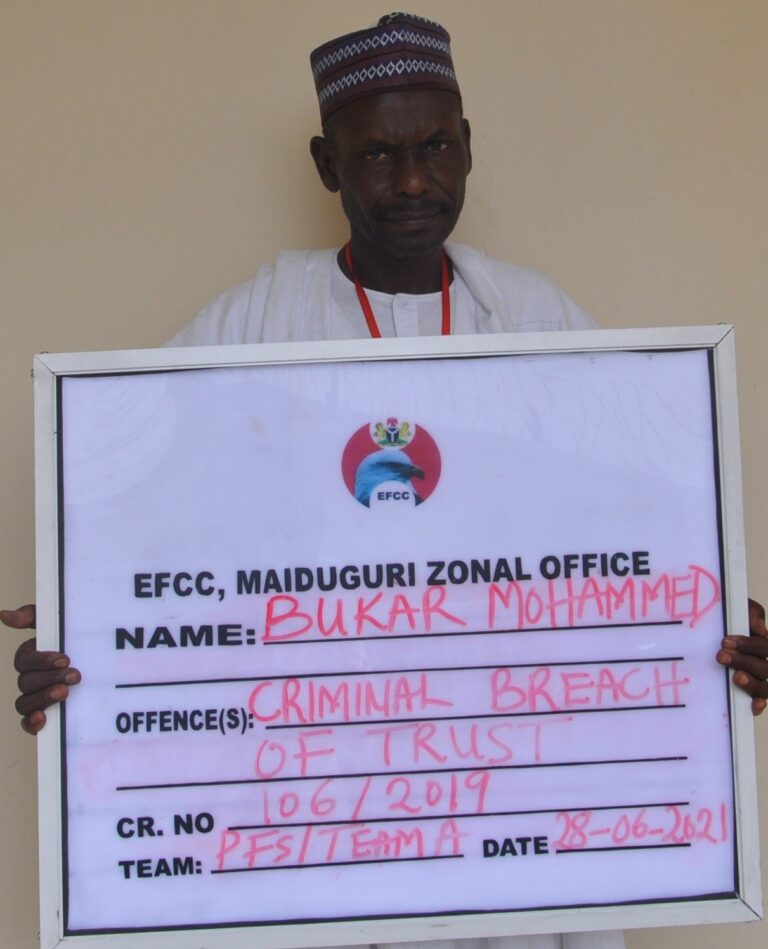 EFCC
EFCC, MAIDUGURI ZONAL OFFICE
NAME: BUKAR MOHAMMED
OFFENCE(S): CRIMINAL BREACH
OF TRUST
CR. NO 106/2019
TEAM: PFS/TEAM A DATE 28-06-2021